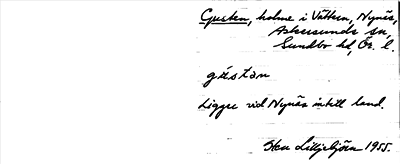 Gusten, holme i Vättern, Nynäs,
Askersunds sn,
Sundbo hd, Ör. l.
gústan
Ligger vid Nynäs intill land.
Sten Lilljebjörn 1955.